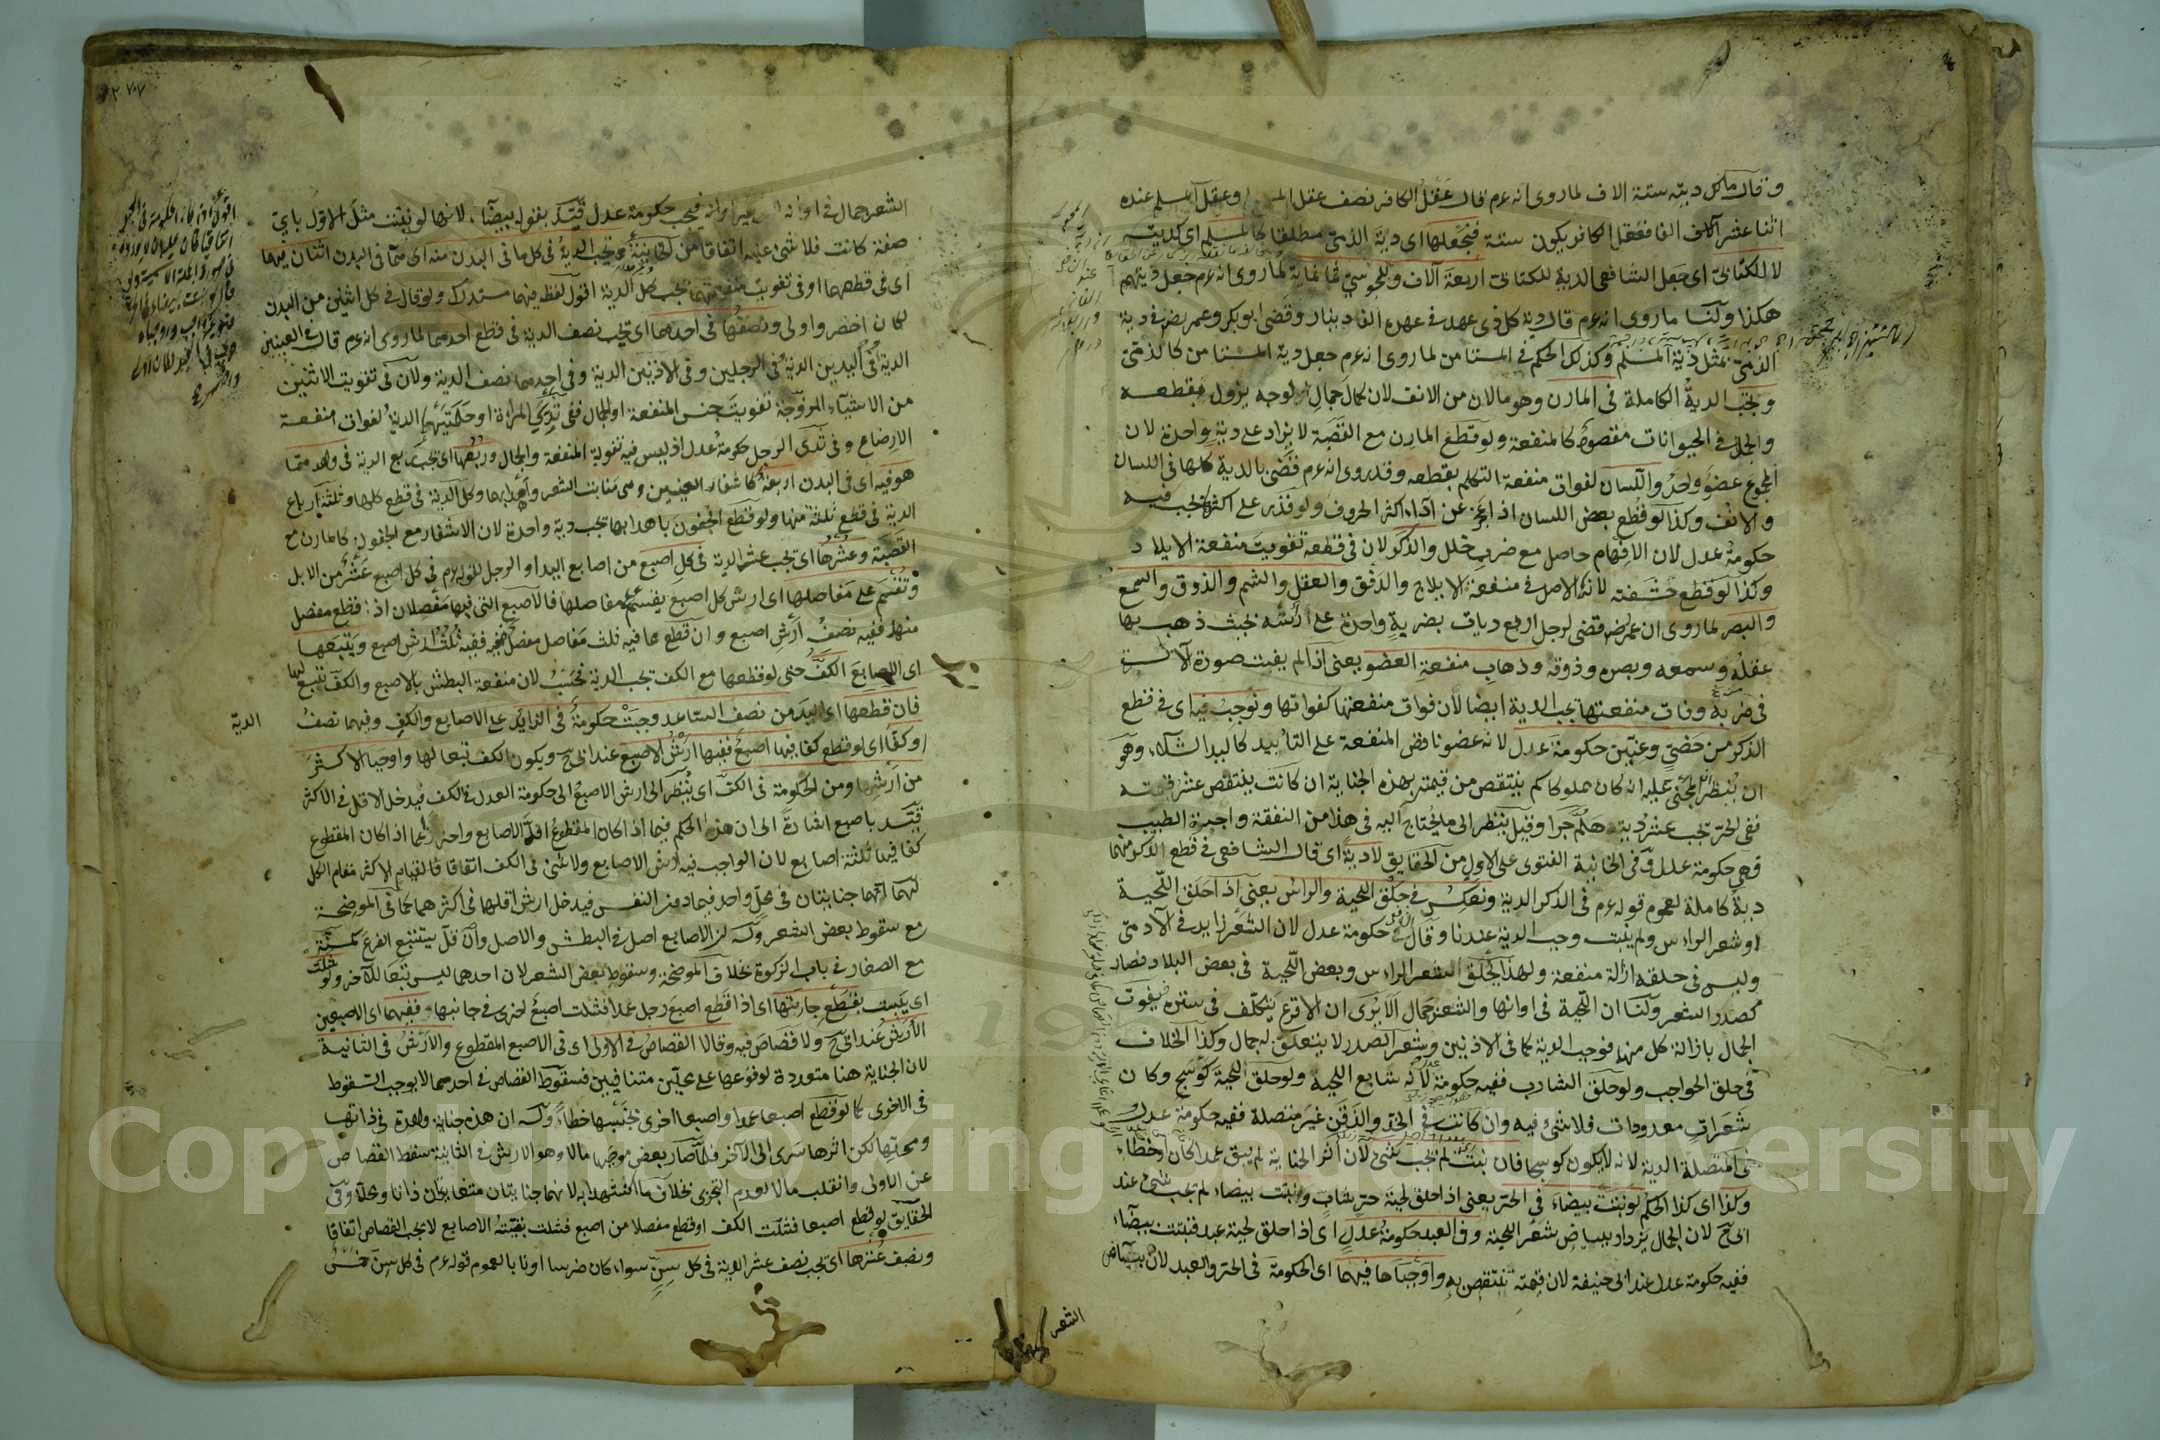 وقال مالك ديته ستة الاف لما روى انه عم قال عقل الكافر نصف عقل وعقل المسلم عنده
اثنا عشر آلاف الفا فعقل الكافر يكون ستة فنجعلها اى دية الذمى مطلقا كالمسلم اى كديته
لا للكتابى اى جعل الشافعى الدية للكتابى اربعة آلاف وللمجوسي ثمانماية لما روى انه عم جعل ديتهم
هكذا ولنا ما روى انه عم قال دية كل ذى عهد فى عهده الف دينار وقضى ابو بكر وعمر رض فى دية
الذمى بمثل دية المسلم وكذلك الحكم في المستامن لما روى انه عم جعل دية المستامن كالذمى
وتجب الدية الكاملة فى المارن وهو مالان من الانف لان كمال جمال الوجه يزول بقطعه
والجمال في الحيوانات مقصود كالمنفعة ولو قطع المارن مع القصبة لا يزاد على دية واحدة لان
المجموع عضو واحد واللسان لفوات منفعة التكلم بقطعه وقد روى انه عم قضى بالدية كلها فى اللسان
والانف وكذا لو قطع بعض اللسان اذا عجز عن آداء اكثر الحروف ولو قدر على اكثرها تجب فيه
حكومة عدل لان الافهام حاصل مع ضرب خلل والذكر لان فى قطعه تفويت منفعة الايلاد
وكذا لو قطع حشفته لانها الاصل فى منفعة الايلاج والدفق والعقل والشم والذوق والسمع
والبصر لما روى ان عمر رض قضى لرجل اربع ديات بضربة واحدة على رأسه حيث ذهب بها
عقله وسمعه وبصره وذوقه وذهاب منفعة العضو يعنى اذا لم يفت صورة الآلة
فى ضربة وفات منفعتها تجب الدية ايضا لان فوات منفعتها كفواتها ونوجب فيه اى فى قطع
الذكر من خصي وعنين حكومة عدل لانه عضو ناقص المنفعة على التأبيد كاليد الشلاء وهو
ان ينظر ان المجنى عليه ان كان مملوكا كم ينتقص من قيمته بهذه الجناية ان كانت ينتقص عشر قيمته
ففى الحر تجب عشر ديته هلم جرا وقيل ينظر الى ما يحتاج اليه فى هذا من النفقة واجرة الطبيب
فهى حكومة عدل وفى الخانية الفتوى على الاول من الحقايق لا دية اى قال الشافعى فى قطع الذكر منهما
دية كاملة لعموم قوله عم فى الذكر الدية ونعكس فى حلق اللحية والراس يعنى اذا حلق اللحية
او شعر الراس ولم ينبت وجب الدية عندنا وقال الشافعى حكومة عدل لان الشعر زايد فى الآدمى
وليس فى حلقه ازالة منفعة ولهذا يحلق الشعر الراس وبعض اللحية فى بعض البلاد فصار
كصدر الشعر ولنا ان اللحية فى اوانها والشعر جمال الا يرى ان الاقرع يتكلف فى ستره فيفوت
الجمال بازالة كل منها فوجب الدية كما فى الاذنين وشعر الصدر لا يتعلق به جمال وكذا الخلاف
فى حلق الحواجب ولو حلق الشارب ففيه حكومة لانه شايع اللحية ولو حلق اللحية كوسج وكان
شعرات معدودات فلا شئ فيه وان كانت فى الخد والذقن غير متصلة ففيه حكومة عدل
فى المتصلة الدية لانه لا يكون كوسجا فان نبت لم تجب شئ لان اثر الجناية لم يبق عمدا كان او خطأ
وكذا اى كذا الحكم لو نبت بيضاء فى الحر يعنى اذا حلق لحية حر شاب ونبتت بيضاء لم تجب شئ عند
ابى ح لان الجمال يزداد ببياض شعر اللحية وفى العبد حكومة عدل اى اذا حلق لحية عبد فنبتت بيضاء
ففيه حكومة عدل عند ابى حنيفة لان قيمته تنتقص به واوجباها فيهما اى الحكومة فى الحر والعبد لان بياض
الشعر
الشعر جمال فى اوانه فيجب حكومة عدل قيد بقوله بيضا، لانها لو نبتت مثل الاول باى
صفة كانت فلا شئ عليه اتفاقا من الخانية وتجب الدية فى كل ما فى البدن منه اى مما فى البدن اثنان فيهما
اى فى قطعهما او فى تفويت منفعتهما تجب كل الدية اقول لفظ فيهما مستدرك ولو قال فى كل اثنين من البدن
لكان اخصر واولى ونصفها فى احدهما اى تجب نصف الدية فى قطع احدهما لما روى انه عم قال فى العينين
الدية وفى اليدين الدية وفى الرجلين وفى الاذنين الدية وفى احدهما نصف الدية ولان فى تفويت الاثنين
من الاشياء المزوجة تفويت جنس المنفعة او الجمال ففى ثديى المرأة او حلمتيهما الدية لفوات منفعة
الارضاع وفى ثدى الرجل حكومة عدل اذ ليس فيه تفويت المنفعة والجمال وربعها اى تجب ربع الدية فى واحد مما
هو فيه اى فى البدن اربعة كاشفار العينين وهى منابت الشعر واهدابها وكل الدية فى قطع كلها وثلثة ارباع
الدية فى قطع ثلثة منها ولو قطع الجفون باهدابها تجب دية واحدة لان الاشفار مع الجفون كالمارن مع
القصبة وعشرها اى تجب عشر الدية فى كل اصبع من اصابع اليد او الرجل لقوله عم فى كل اصبع عشر من الابل
وتقسم على مفاصلها اى ارش كل اصبع يقسم على مفاصلها فالاصبع التى فيها مفصلان اذا قطع مفصل
منها ففيه نصف ارش اصبع وان قطع مما فيه ثلث مفاصل مفصل ففيه ثلث ارش اصبع ويتبعها
اى الاصابع الكف حتى لو قطعها مع الكف تجب الدية فحسب لان منفعة البطش بالاصبع والكف تتبع لها
فان قطعها اى اليد من نصف الساعد وجبت حكومة فى الزايد على الاصابع والكف وفيهما نصف الدية
او كفا اى لو قطع كفا فيها اصبع ففيها ارش الاصبع عند ابى ح ويكون الكف تبعا لها واوجبا الاكثر
من ارشها ومن الحكومة فى الكف اى ينظر الى ارش الاصبع الى حكومة العدل فى الكف فيدخل الاقل فى الاكثر
قيد باصبع اشارة الى ان هذا الحكم فيما اذا كان المقطوع اقل الاصابع واحترز عما اذا كان المقطوع
كفا فيها ثلثة اصابع لان الواجب فيه ارش الاصابع ولا شئ فى الكف اتفاقا لقيام الاكثر مقام الكل
لهما انهما جنايتان فى محل واحد فيما دون النفس فيدخل ارش اقلها فى اكثرهما كما فى الموضحة
مع سقوط بعض الشعر وله ان الاصابع اصل فى البطش والاصل وان قل يستتبع الفرع كمسنة
مع الصغار فى باب الزكوة خلاف الموضحة وسقوط بعض الشعر لان احدهما ليس تبعا للآخر ولو شلت
اى يبست بقطع جارتها اى اذا قطع اصبع رجل عمدا فشلت اصبع اخرى فى جانبها ففيهما اى الاصبعين
الارش عند ابى ح ولا قصاص فيه وقالا القصاص فى الاولى اى فى الاصبع المقطوع والارش فى الثانية
لان الجناية هنا متعددة لوقوعها على محلين متنافيين فسقوط القصاص فى احدهما لا يوجب السقوط
فى الاخرى كما لو قطع اصبعا عمدا واصبعا اخرى بجنبها خطاء وله ان هذه جناية واحدة فى ذاتها
ومحلها لكن اثرها سرى الى الآخر فلما صار بعض موجبها مالا وهو الارش فى الثانية سقط القصاص
عن الاولى وانقلب مالا لعدم التجزى بخلاف ما استشهدا به لانهما جنايتان متغايرتان ذاتا ومحلا وفى
الحقايق لو قطع اصبعا فشلت الكف او قطع مفصلا من اصبع فشلت بقيته الاصابع لا يجب القصاص اتفاقا
ونصف عشرها اى تجب نصف عشر الدية فى كل سن سواء كان ضرسا او نابا لعموم قوله عم فى كل سن خمس